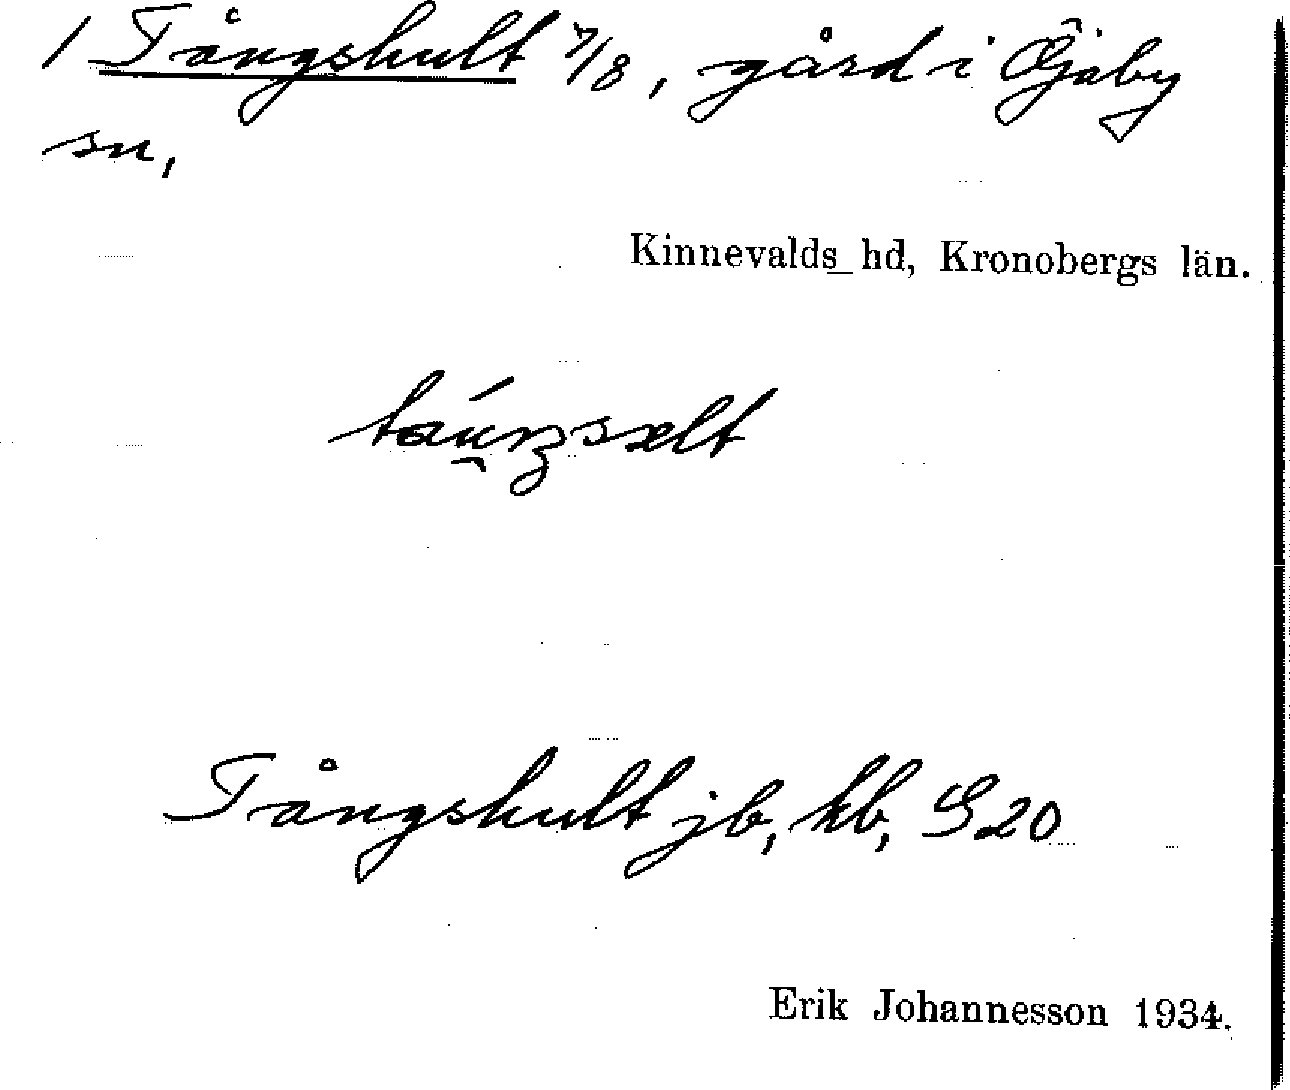 1 Tångshult 7/8, gård i Öjaby
sn,
Kinnevalds hd, Kronobergs län.
Tångshult jb, kb, S20
Erik Johannesson 1934.